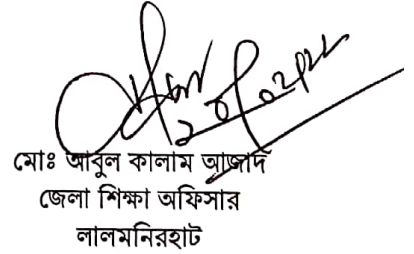 মোঃ আবুল কালাম আজাদ
জেলা শিক্ষা অফিসার
লালমনিরহাট